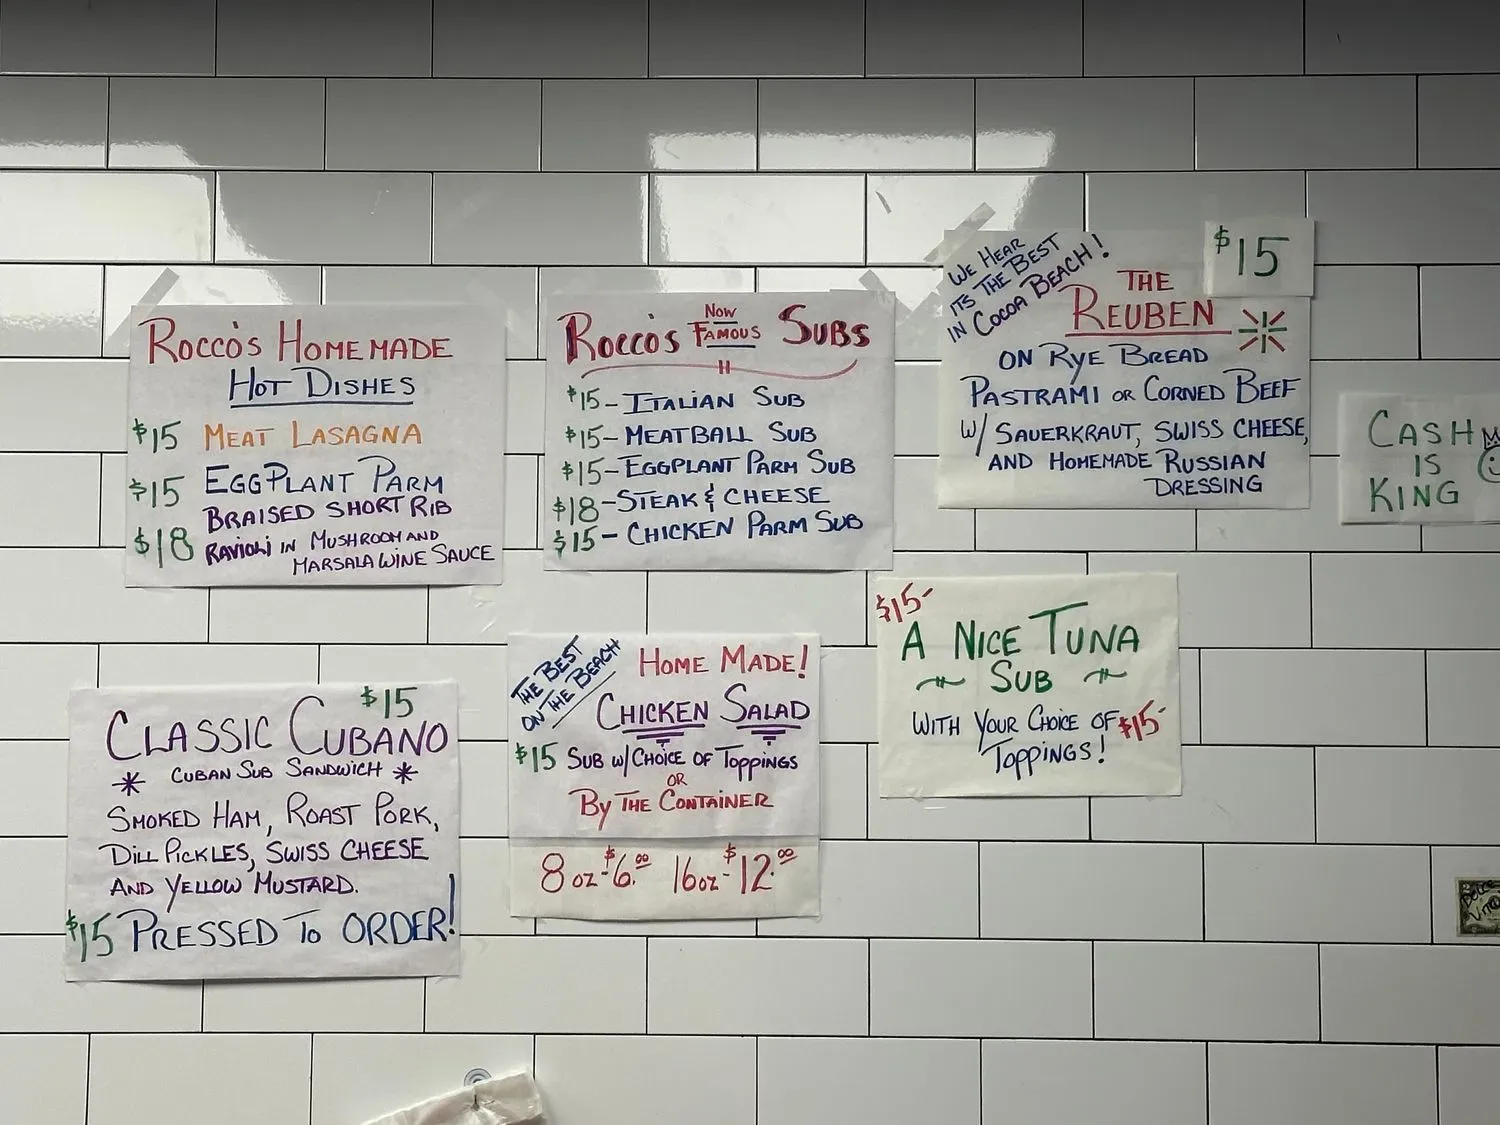 ROCCO'S HOMEMADE
HOT DISHES
$15 MEAT LASAGNA
$15 EGGPLANT PARM
BRAISED SHORT RIB
$18 RAVIOLI IN MUSHROOM AND
MARSALA WINE SAUCE
ROCCO'S NOW FAMOUS SUBS
$15- ITALIAN SUB
$15- MEATBALL SUB
$15- EGGPLANT PARM SUB
$18- STEAK & CHEESE
$15- CHICKEN PARM SUB
WE HEAR
ITS THE BEST
IN COCOA BEACH!
$15
THE
REUBEN
ON RYE BREAD
PASTRAMI OR CORNED BEEF
W/ SAUERKRAUT, SWISS CHEESE,
AND HOMEMADE RUSSIAN
DRESSING
CASH
IS
KING
$15
CLASSIC CUBANO
* CUBAN SUB SANDWICH *
SMOKED HAM, ROAST PORK,
DILL PICKLES, SWISS CHEESE
AND YELLOW MUSTARD.
$15 PRESSED TO ORDER!
THE BEST
ON THE BEACH
HOME MADE!
CHICKEN SALAD
$15 SUB W/CHOICE OF TOPPINGS
OR
BY THE CONTAINER
8 oz-$6.00 16oz-$12.00
$15-
A NICE TUNA
SUB
WITH YOUR CHOICE OF $15-
TOPPINGS!